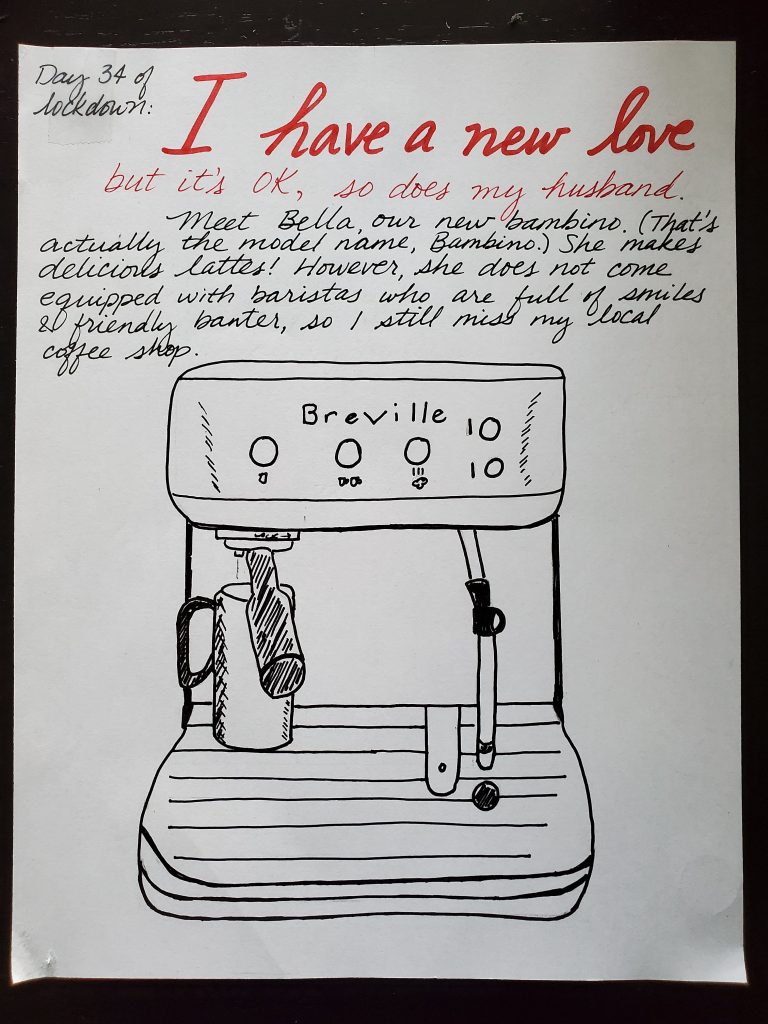 Day 34 of
lockdown:
I have a new love
but it's OK, so does my husband.
Meet Bella, our new bambino. (That's
actually the model name, Bambino.) She makes
delicious lattes! However, she does not come
equipped with baristas who are full of smiles
& friendly banter, so I still miss my local
coffee shop.
Breville